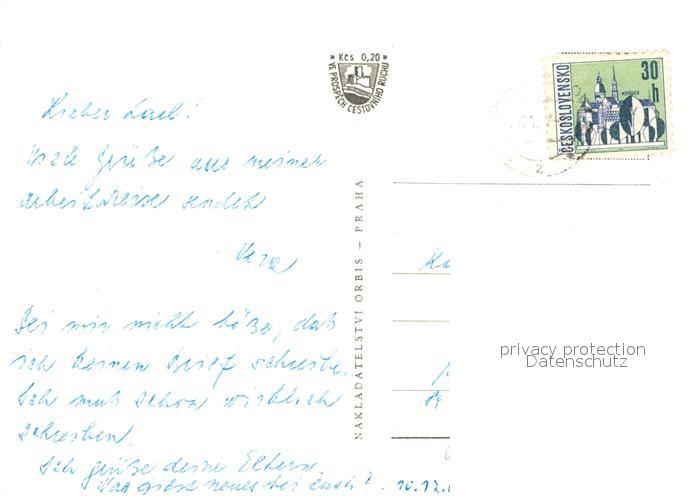 Kčs 0,20
VE PROSPĚCH CESTOVNÍHO RUCHU
ČESKOSLOVENSKO
30 h
KOŠICE
Lieber Karl!
Viele Grüße aus meiner
Arbeitsreise sendet
Vera
Sei mir nicht böse, daß
ich keinen Brief schreibe.
Ich muß schon wirklich
schreiben.
Ich grüße deine Eltern.
Was gibst neues bei euch?
NAKLADATELSTVÍ ORBIS – PRAHA
privacy protection
Datenschutz